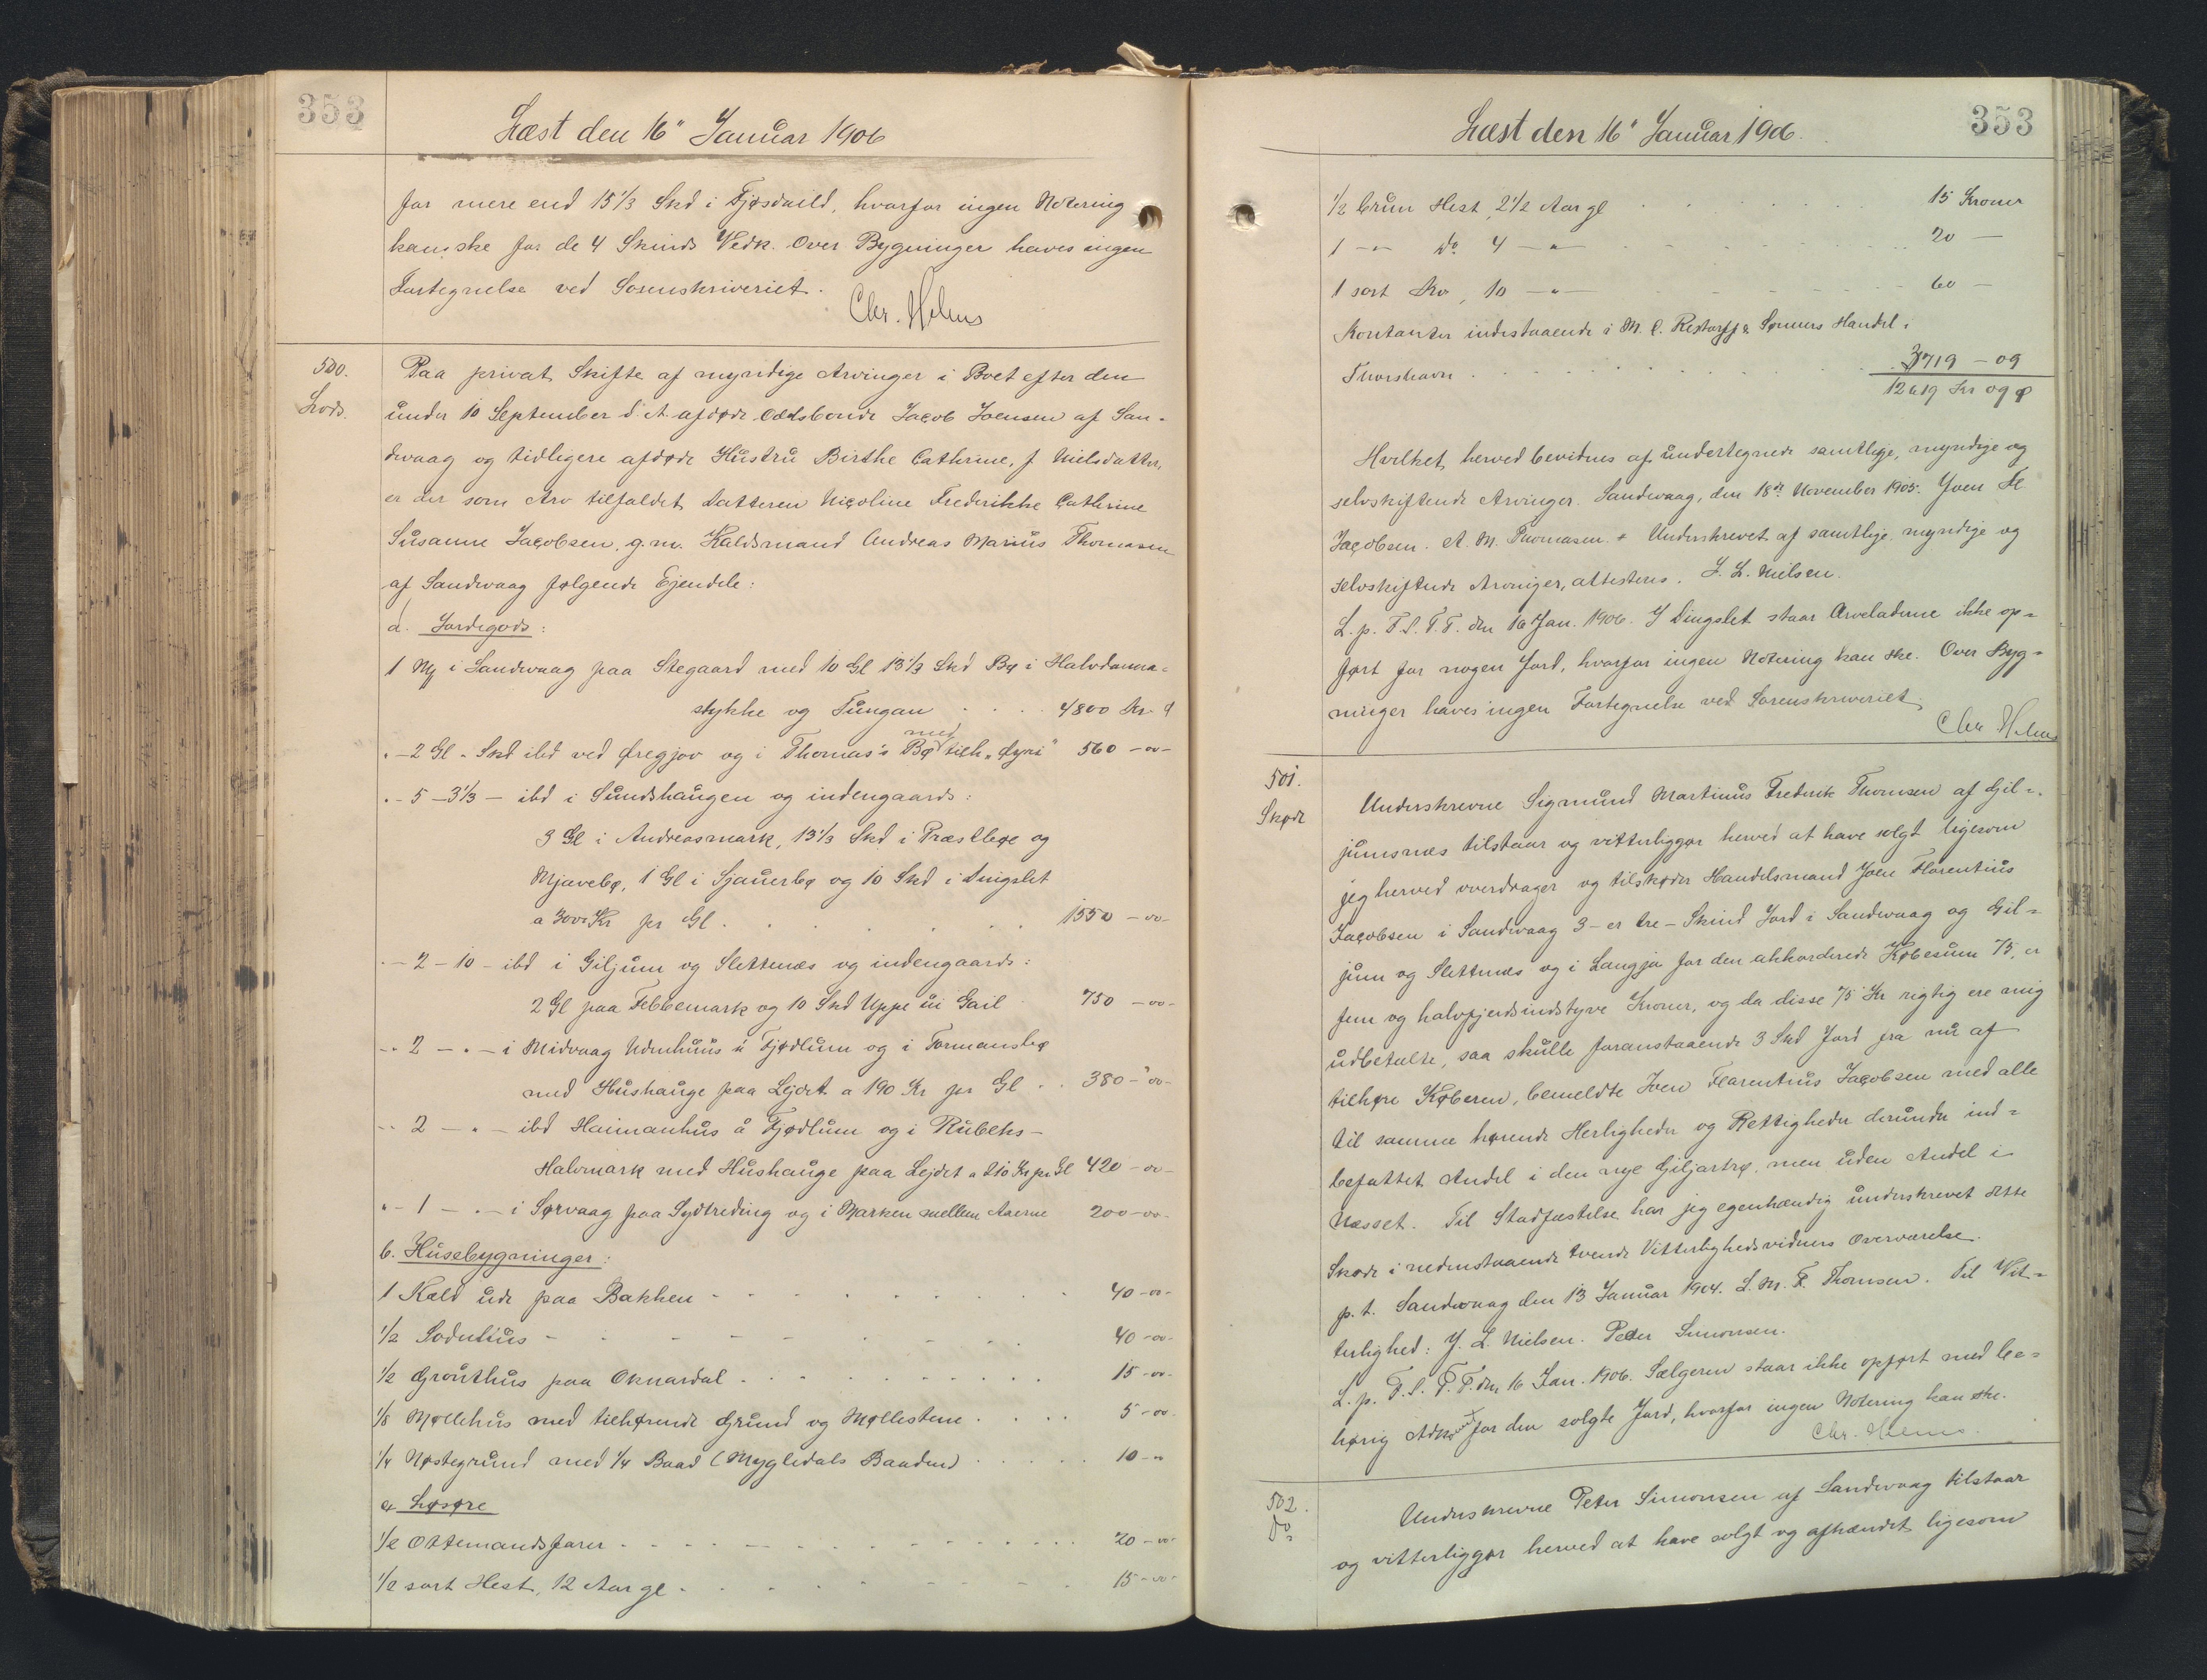 353
Læst den 16" Januar 1906
for mere end 15 1/3 Skd i Fjøsdaild, hvorfor ingen Notering
kan ske for de 4 Skinds Vedk. Over Bygninger haves ingen
Fortegnelse ved Sorenskriveriet.
Chr. Helms
500.
Lods.
Paa privat Skifte af myndige Arvinger i Boet efter den
under 10 September d. A. afdøde Odelsbonde Jacob Joensen af San-
dvaag og tidligere afdøde Hustru Birthe Cathrine, f. Nielsdatter,
er der som Arv tilfaldet Datteren Nicoline Frederikke Cathrine
Susanne Jacobsen, g. m. Kaldsmand Andreas Marius Thomasen
af Sandvaag følgende Ejendele:
a. Jordegods:
1 Mk i Sandvaag paa Stegaard med 10 Gl 13 1/3 Skd Bø i Halvdanna-
stykke og Tungan 4800 Kr
" - 2 Gl " Skd ibd ved Øregjov og i Thomas's Bø med tilh. "Oyri" 560 - 00 -
" - 5 - 3 1/3 - ibd i Sundshaugen og indengaards:
3 Gl i Andreasmark, 13 1/3 Skd i Præstbøe og
Mjavebø, 1 Gl i Sjauerbø og 10 Skd i Dingslet
a 300 Kr pr Gl 1550 - 00 -
" - 2 - 10 - ibd i Giljum og Slettenæs og indengaards:
2 Gl paa Febbemark og 10 Skd Uppe úi Gail 750 - 00 -
" - 2 - " - i Midvaag Udenhuus á Fjødlum og i Formansbø
med Hushauge paa Lejdet a 190 Kr pr Gl 380 - 00 -
" - 2 - " - ibd Haimanhus á Fjødlum og i Rubeks-
Halvmark med Hushauge paa Lejdet a 210 Kr pr Gl 420 - 00 -
" - 1 - " - i Sørvaag paa Sydtreding og i Marken mellem Aaerne 200 - 00 -
b. Husebygninger:
1 Kald ude paa Bakken 40 - 00 -
1/2 Soduhus 40 - 00 -
1/2 Grouthus paa Oknardal 15 - 00 -
1/8 Møllehus med tilhørende Grund og Møllestene 5 - 00
1/4 Nøstegrund med 1/4 Baad (Mygledals Baaden) 10 - "
c. Løsøre
1/2 Ottemandsfarer 20 - 00 -
1/2 sort Hest, 12 Aar gl 15 - 00 -
Læst den 16" Januar 1906.
353
1/2 brun Hest, 2 1/2 Aar gl 15 Kroner
1 - " - Do 4 - " - 20 -
1 sort Ko, 10 - " - 60 -
Kontanter indestaaende i M. C. Restorff & Sønners Handel i
Thorshavn 3719 - 09
12619 Kr 09 Ø
Hvilket herved bevidnes af undertegnede samtlige, myndige og
selvskiftende Arvinger. Sandvaag, den 18de November 1905. Joen Fl.
Jacobsen. A. M. Thomasen. + Underskrevet af samtlige myndige og
selvskiftende Arvinger, attesteres. J. L. Nielsen.
L. p. F. S. T. T. den 16 Jan. 1906. I Dingslet staar Arveladerne ikke op-
ført for nogen Jord, hvorfor ingen Notering kan ske. Over Byg-
ninger haves ingen Fortegnelse ved Sorenskriveriet
Chr Helms
501.
Skøde
Underskrevne Sigmund Martinus Frederik Thomsen af Gil-
jumsnæs tilstaar og vitterliggør herved at have solgt ligesom
jeg herved overdrager og tilskøder Handelsmand Joen Florentius
Jacobsen i Sandvaag 3 - er tre - Skind Jord i Sandvaag og Gil-
jum og Slettnæs og i Langjá for den akkorderede Købesum 75, er
fem og halvfjerdsindstyve Kroner, og da disse 75 Kr rigtig ere mig
udbetalte, saa skulle foranstaaende 3 Skd Jord fra nu af
tilhøre Køberen, bemeldte Joen Florentius Jacobsen med alle
til samme hørende Herligheder og Rettigheder derunder ind-
befattet Andel i den nye Giljartrø, men uden Andel i
Næsset. Til Stadfæstelse har jeg egenhændig underskrevet dette
Skøde i nedenstaaende tvende Vitterlighedsvidners Overværelse.
p. t. Sandvaag den 13 Januar 1904. S. M. F. Thomsen. Til Vit-
terlighed: J. L. Nielsen. Peder Simonsen.
L. p. F. S. T. T. den 16 Jan. 1906. Sælgeren staar ikke opført med be-
hørig Adkomst for den solgte Jord, hvorfor ingen Notering kan ske.
Chr. Helms.
502.
Do
Underskrevne Peter Simonsen af Sandvaag tilstaar
og vitterliggør herved at have solgt og afhændet ligesom